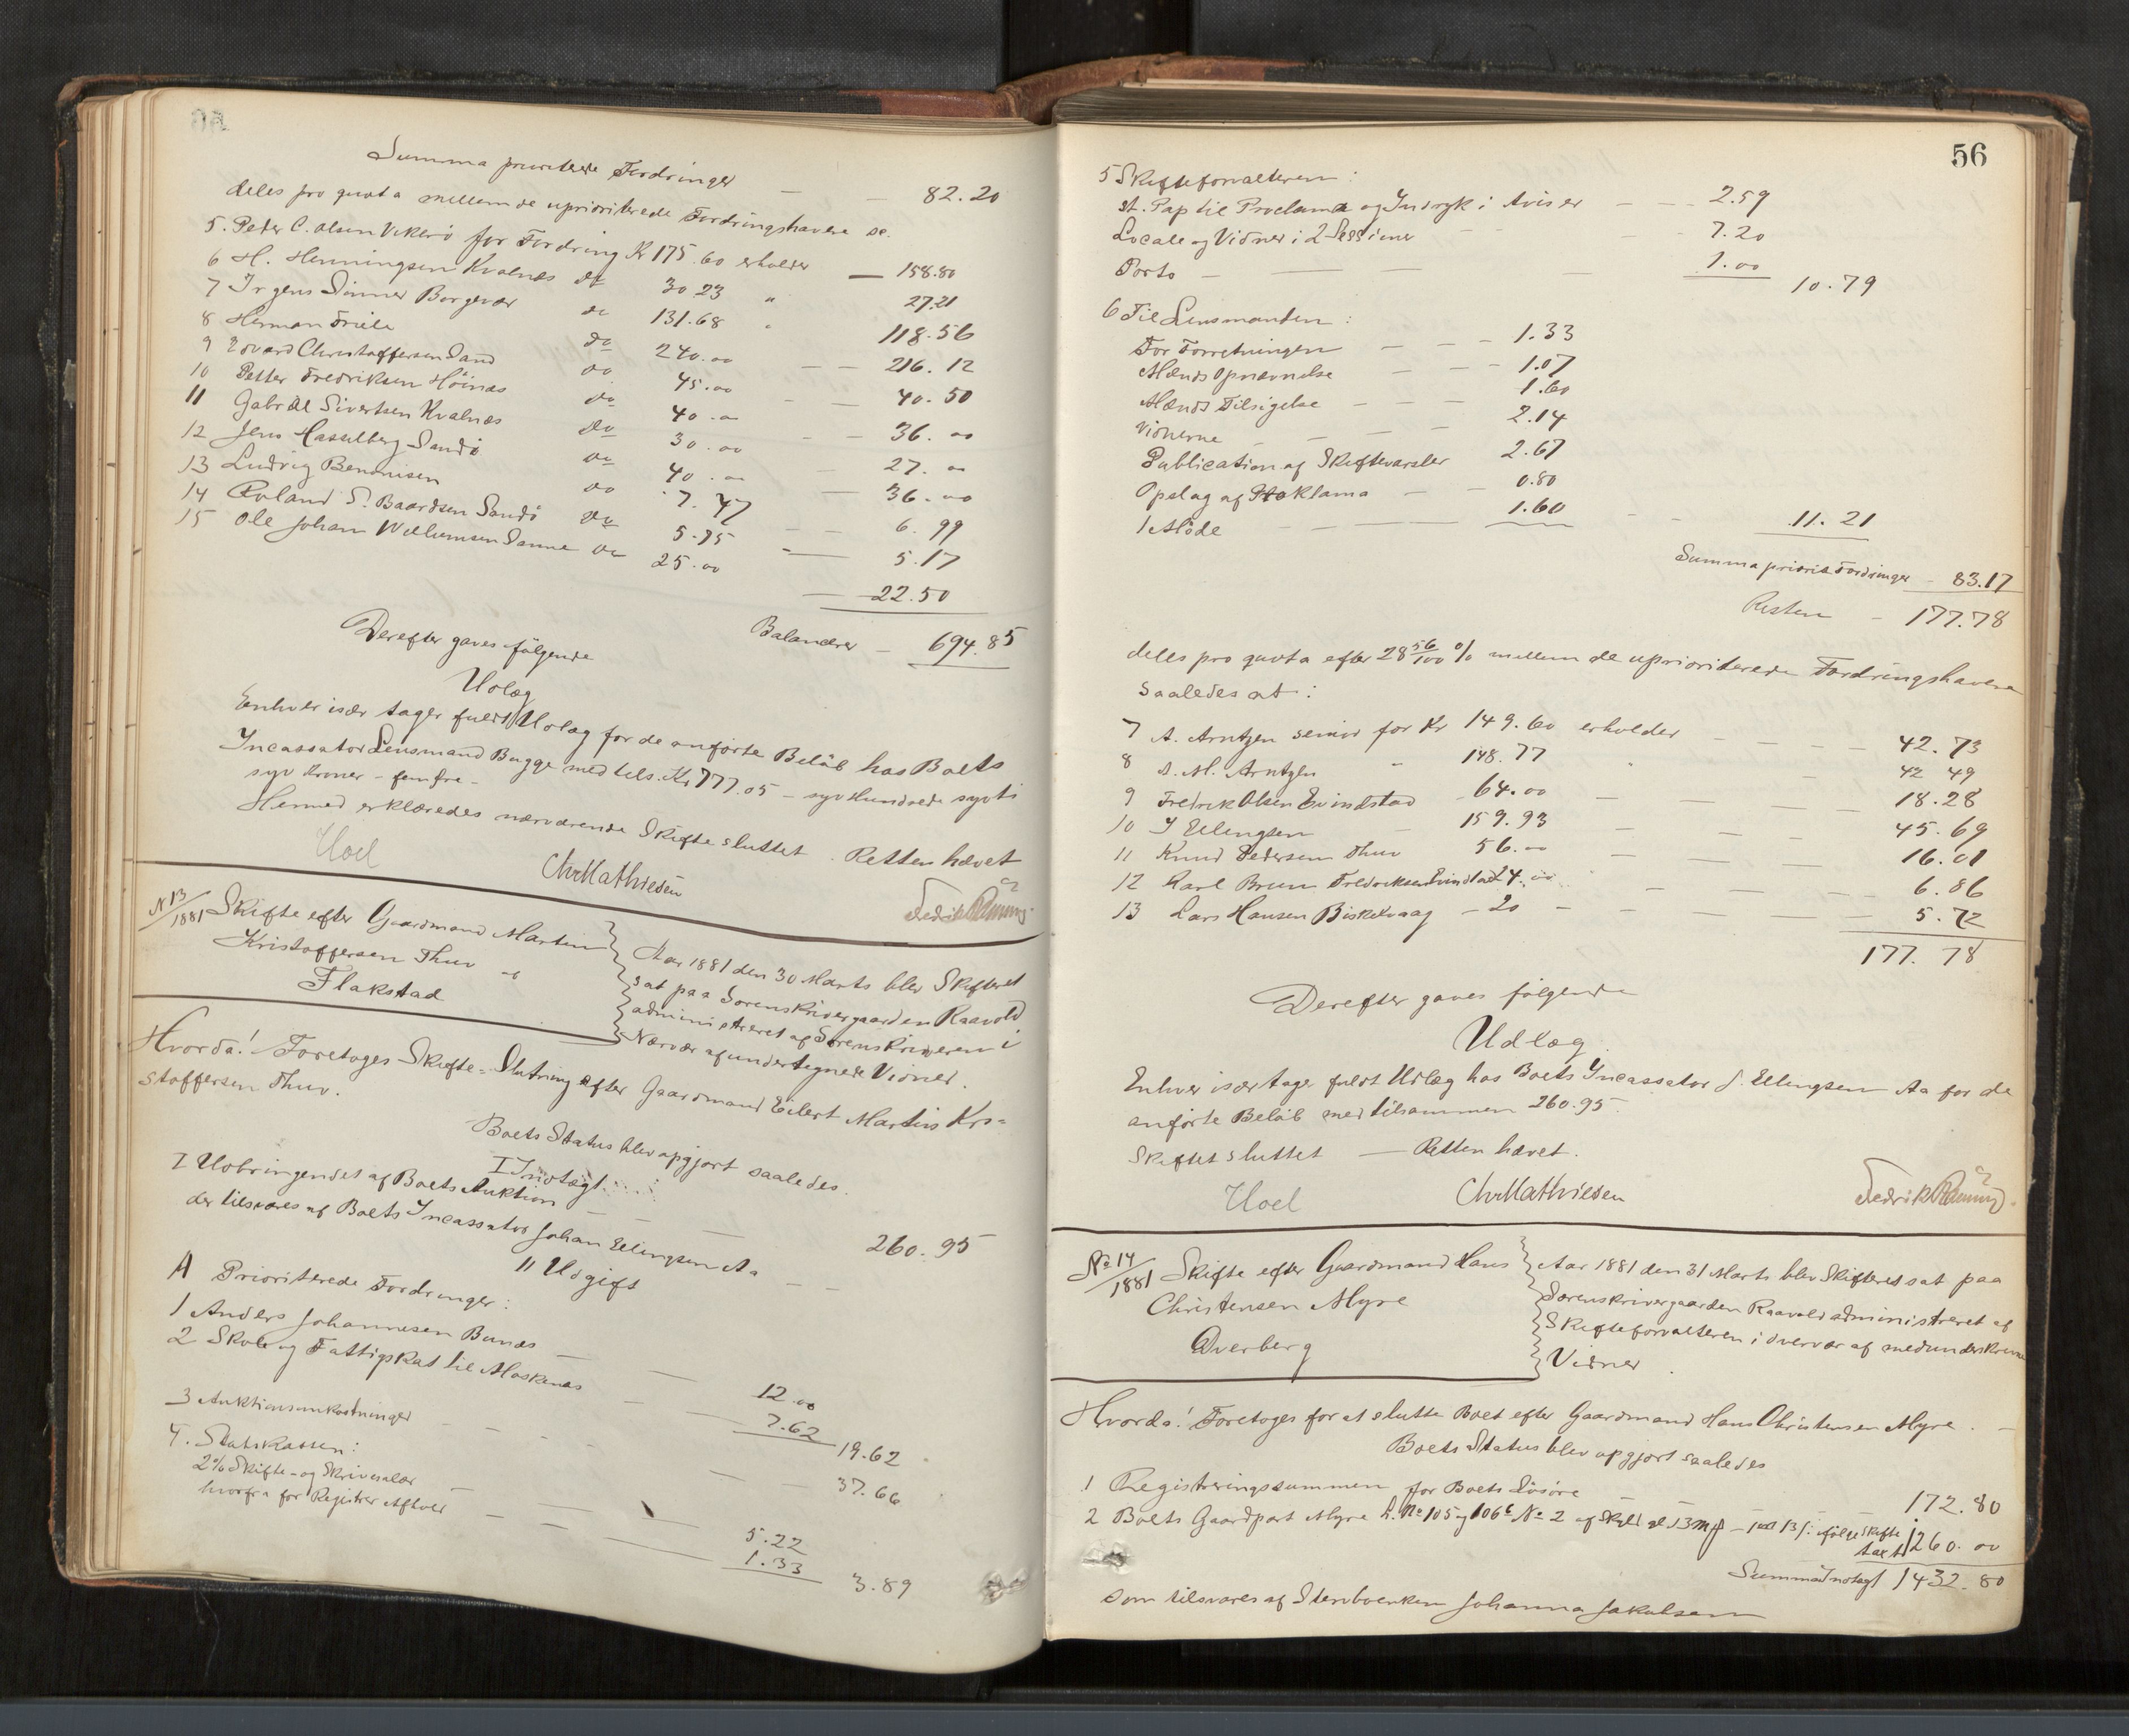 Summa prioriterede Fordringer — 82.20
deles pro qvota mellem de uprioriterede Fordringshavere sc.
5. Peder C. Olsen Vikerö for Fordring Kr 175.60 erholder — 158.80
6 H. Henningsen Kvalnæs do 30 23 " 27.21
7 Irgens Sönner Borgevær do 131.68 " 118.56
8 Herman Friele do 240.00 — 216.12
9 Edvard Christoffersen Sand do 45.00 — 40.50
10 Petter Fredriksen Höinæs do 40.00 — 36.00
11 Gabriel Sivertsen Kvalnæs do 30.00 — 27.00
12 Jens Hasselberg Sandö do 40.00 — 36.00
13 Ludvig Benonisen do 7.77 — 6.99
14 Roland S. Baardsen Sandö do 5.75 — 5.17
15 Ole Johan Willumsen Sanne do 25.00 — 22.50
Balancerer — 694.85
Derefter gaves følgende
Udlæg
Enhver især tager fuldt Udlæg for de anførte Beløb hos Boets
Incassator Lensmand Bugge med tils. Kr 777.05 — syv Hundrede sytti
syv Kroner – fem Øre –
Hermed erklæredes nærværende Skifte sluttet. Retten hævet
Hoel Chr Mathiesen Fredrik
N 13/1881 Skifte efter Gaardmand Martin
Kristoffersen Thuv
Flakstad
Aar 1881 den 30 Marts blev Skifteret
sat paa Sorenskrivergaarden Raavold
administreret af Sorenskriveren i
Nærvær af undertegnede Vidner.
Hvorda! Foretoges Skifte-Slutning efter Gaardmand Eilert Martin Kri-
stoffersen Thuv.
Boets Status blev opgjort saaledes.
I Indtægt
I Udbringendet af Boets Auktion
der tilsvares af Boets Incassator Johan Ellingsen Aa — 260.95
II Udgift
A Prioriterede Fordringer:
1 Anders Johannesen Bunæs — 12.00
2 Skole og Fattigskat til Moskenes — 7.62
19.62
3 Auktionsomkostninger — 37.66
4. Statskassen:
2% Skifte- og Skriversalær — 5.22
hvorfra for Registr. Afholdt — 1.33
3.89
56
5 Skifteforvalteren:
st. Pap til Proclama og Indryk i Aviser — 2.59
Locale og Vidner i 2 Sessioner — 7.20
Porto — 1.00
10.79
6 Til Lensmanden:
For Forretningen — 1.33
Mænds Opnævnelse — 1.07
Mænds Tilsigelse — 1.60
Vidnerne — 2.14
Publication af Skiftevarsler 2.67
Opslag af Proklama — 0.80
1 Møde — 1.60
11.21
Summa priorit Fordringer – 83.17
Resten – 177.78
deles pro qvota efter 28 56/100 % mellem de uprioriterede Fordringshavere
saaledes at:
7 A. Arntzen senior for Kr 149.60 erholder — 42.73
8 A. M. Arntzen " 148.77 — 42 49
9 Fredrik Olsen Evindstad 64.00 — 18.28
10 J Ellingsen 159.93 — 45.69
11 Knud Pedersen Thuv 56.00 — 16.01
12 Karl Brun Fredriksen Evindstad 24.00 — 6.86
13 Lars Hansen Biskekvaag — 20 — 5.72
177.78
Derefter gaves følgende
Udlæg
Enhver især tager fuldt Udlæg hos Boets Incassator J. Ellingsen Aa for de
anførte Beløb med tilsammen 260.95.
Skiftet sluttet — Retten hævet.
Hoel Chr Mathiesen Fredrik
No 14/1881 Skifte efter Gaardmand Hans
Christensen Myre
Overberg
Aar 1881 den 31 Marts blev Skifteret sat paa
Sorenskrivergaarden Raavold administreret af
Skifteforvalteren i Overvær af medunderskrevne
Vidner.
Hvorda! Foretoges for at slutte Boet efter Gaardmand Hans Christensen Myre.
Boets Status blev opgjort saaledes
1 Registreringssummen for Boets Løsøre — 172.80
2 Boets Gaardpart Myre L. No 105 og 106 No 2 af Skyld gl 13 ifølge Skifte
taxt 1260.00
Summa Indtægt 1432.80
som tilsvares af Stervboenken Johanna Jakobsen